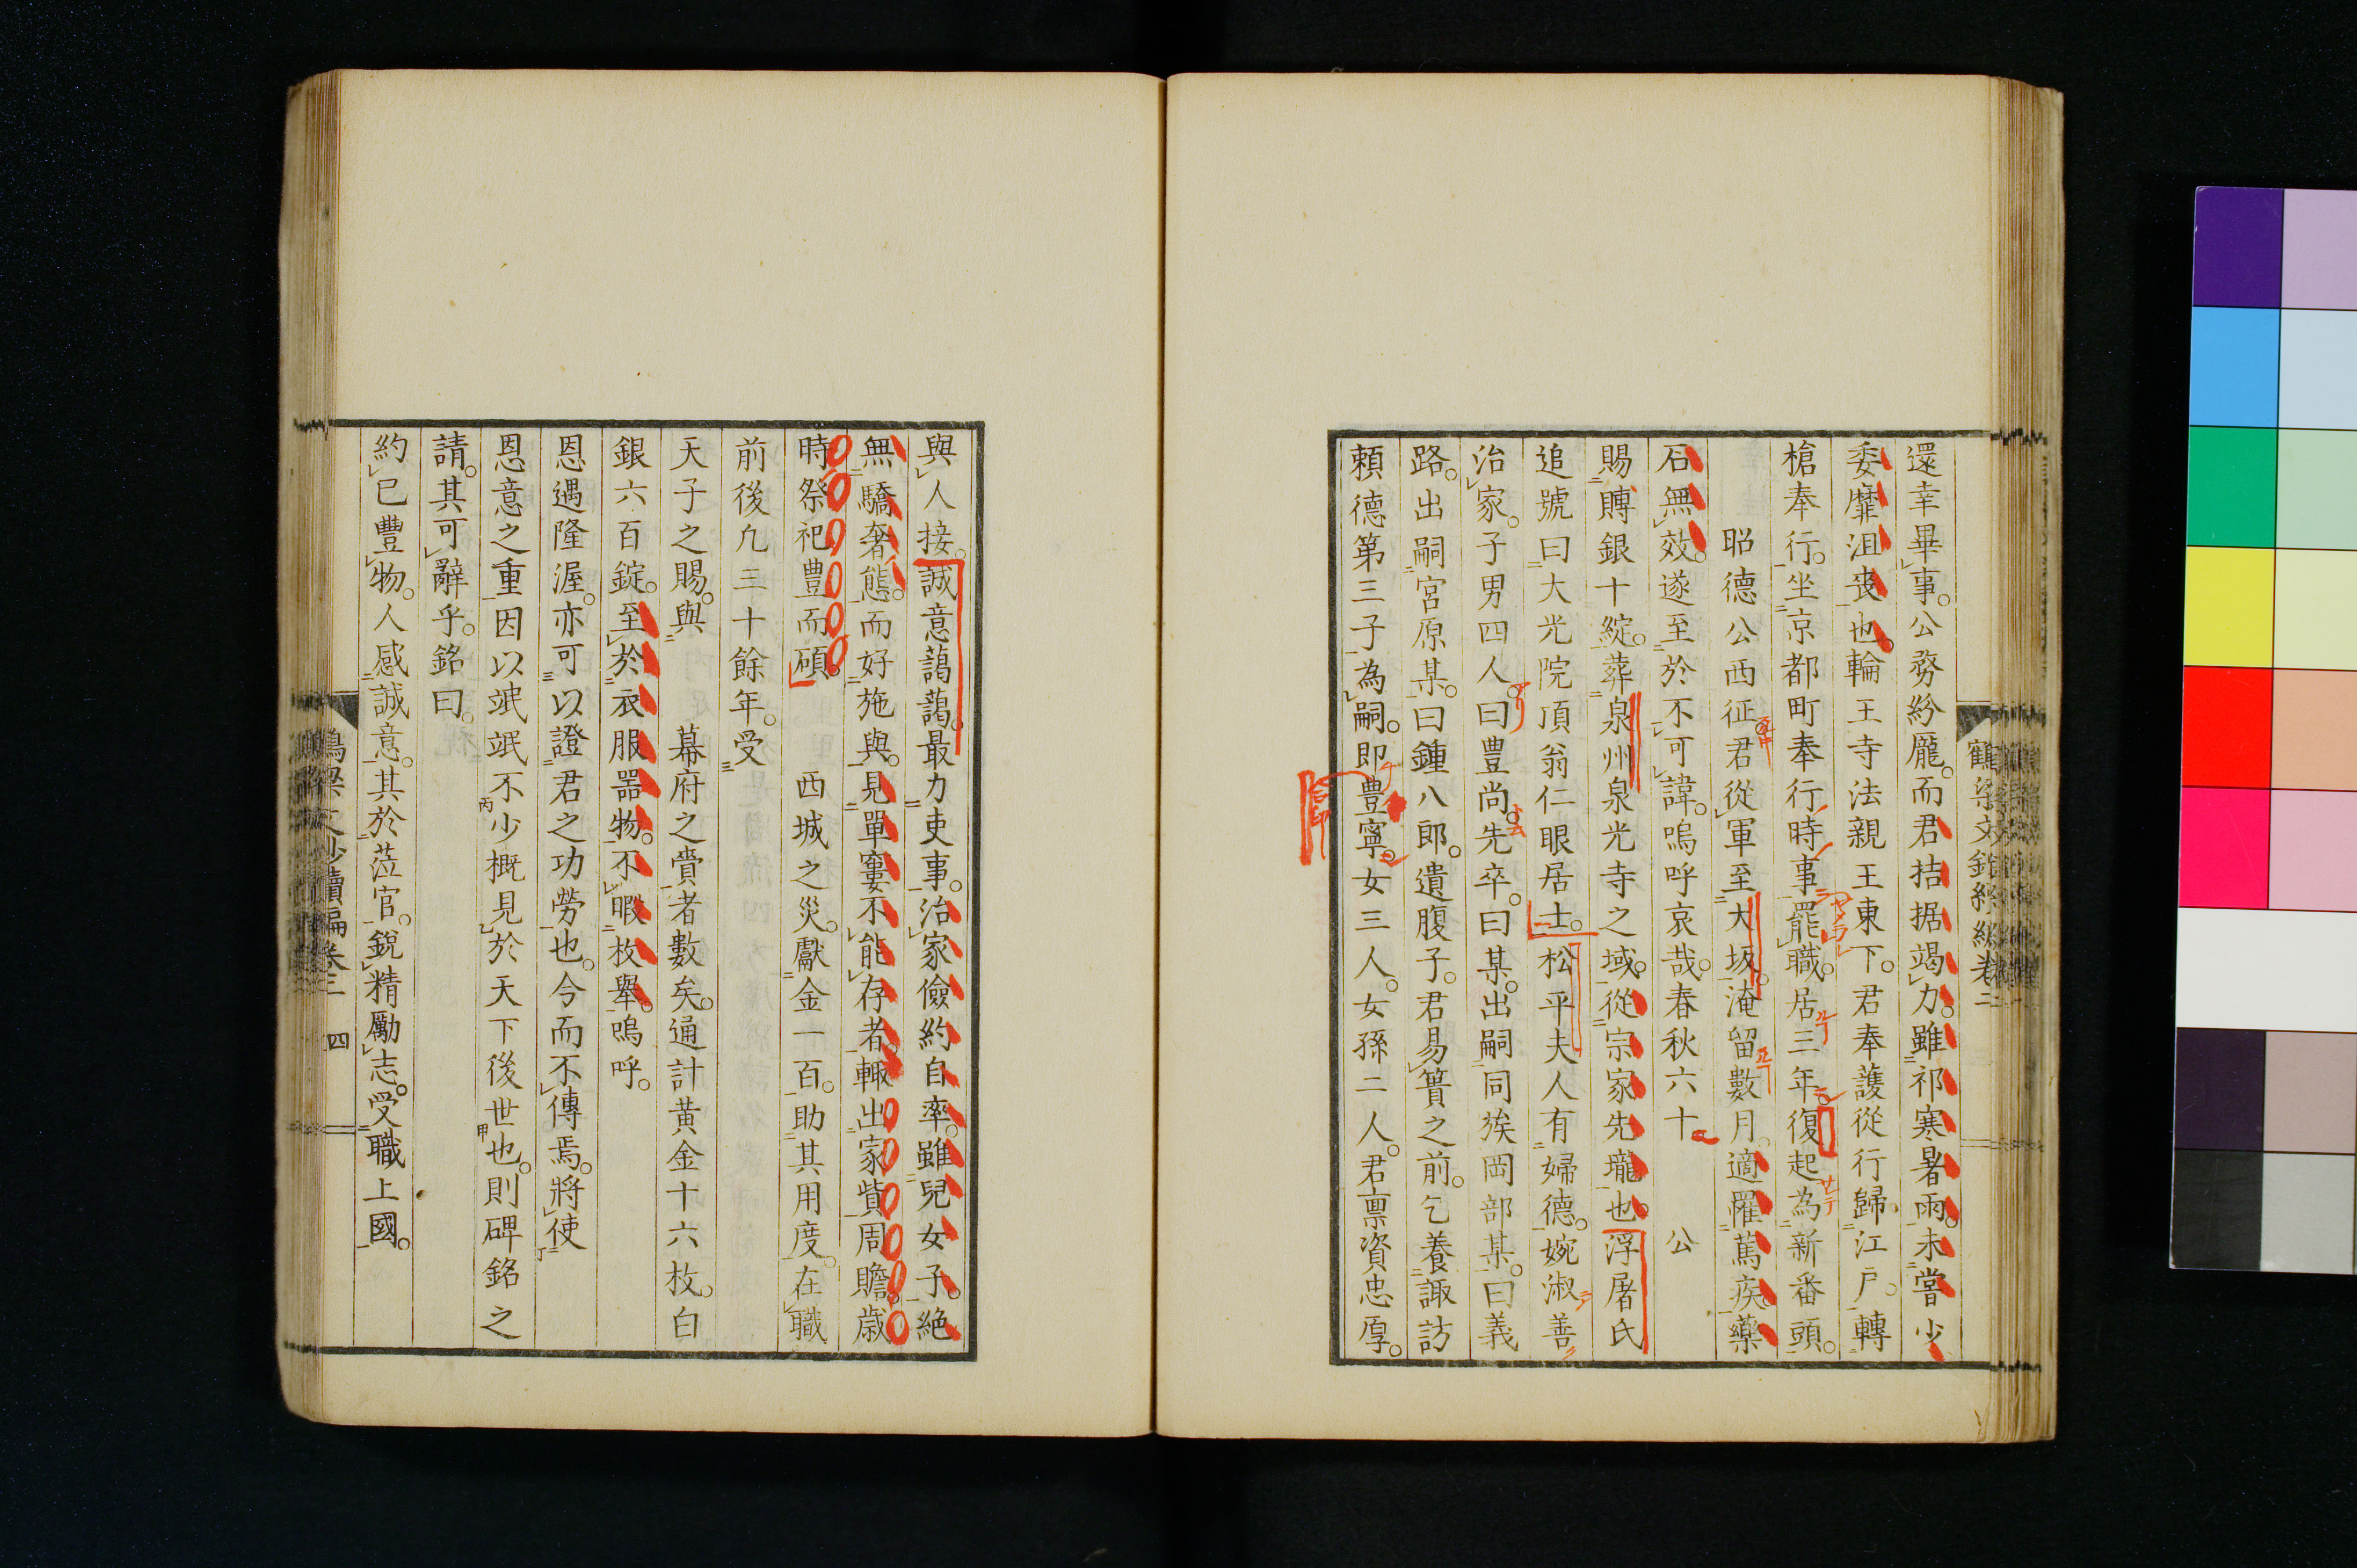 還幸畢事。公務紛厖。而君拮据竭力。雖祁寒暑雨。未嘗少
委靡沮喪也。輪王寺法親王東下。君奉護從行歸江戸。轉
槍奉行。坐京都町奉行時事罷職。居三年。復起為新番頭。
昭德公西征君從軍至大坂。淹留數月。適罹篤疾。藥
石無效。遂至於不可諱。嗚呼哀哉。春秋六十 公
賜賻銀十錠。葬泉州泉光寺之域。從宗家先壠也。浮屠氏
追號曰大光院頂翁仁眼居士。松平夫人有婦德。婉淑善
治家。子男四人。曰豊尚。先卒。曰某。出嗣同族岡部某。曰義
路。出嗣宮原某。曰鍾八郎。遺腹子。君易簀之前。乞養諏訪
頼德第三子為嗣。即豊寧。女三人。女孫二人。君禀資忠厚。
鶴梁文鈔續編卷二
與人接。誠意藹藹。最力吏事。治家儉約自率。雖兒女子。絶
無驕奢態。而好施與。見單窶不能存者。輙出家貲周贍。歳
時祭祀豊而碩。 西城之災。獻金一百。助其用度。在職
前後凢三十餘年。受
天子之賜。與 幕府之賞者數矣。通計黄金十六枚。白
銀六百錠。至於衣服器物。不暇枚舉。嗚呼。
恩遇隆渥。亦可以證君之功勞也。今而不傳焉。將使
恩意之重因以泯泯。不少概見於天下後世也。則碑銘之
請。其可辭乎。銘曰。
約已豐物。人感誠意。其於莅官。銳精勵志。受職上國。
鶴梁文鈔續編卷二 四